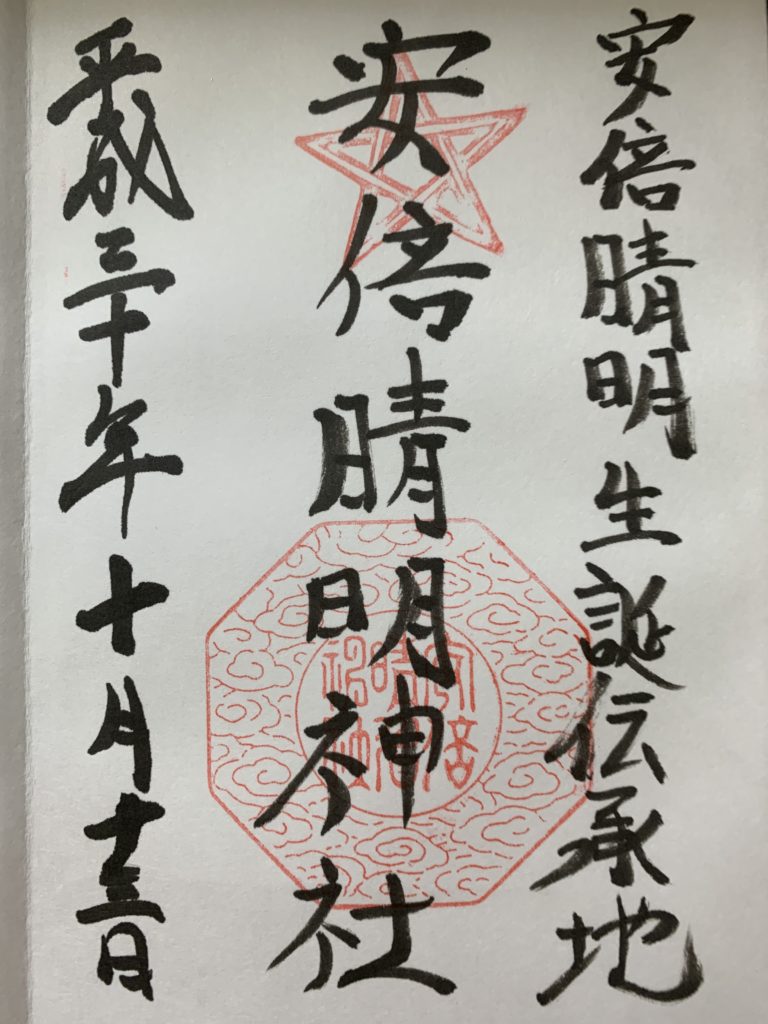 安倍晴明生誕伝承地
安倍晴明神社
平成三十年十月十三日